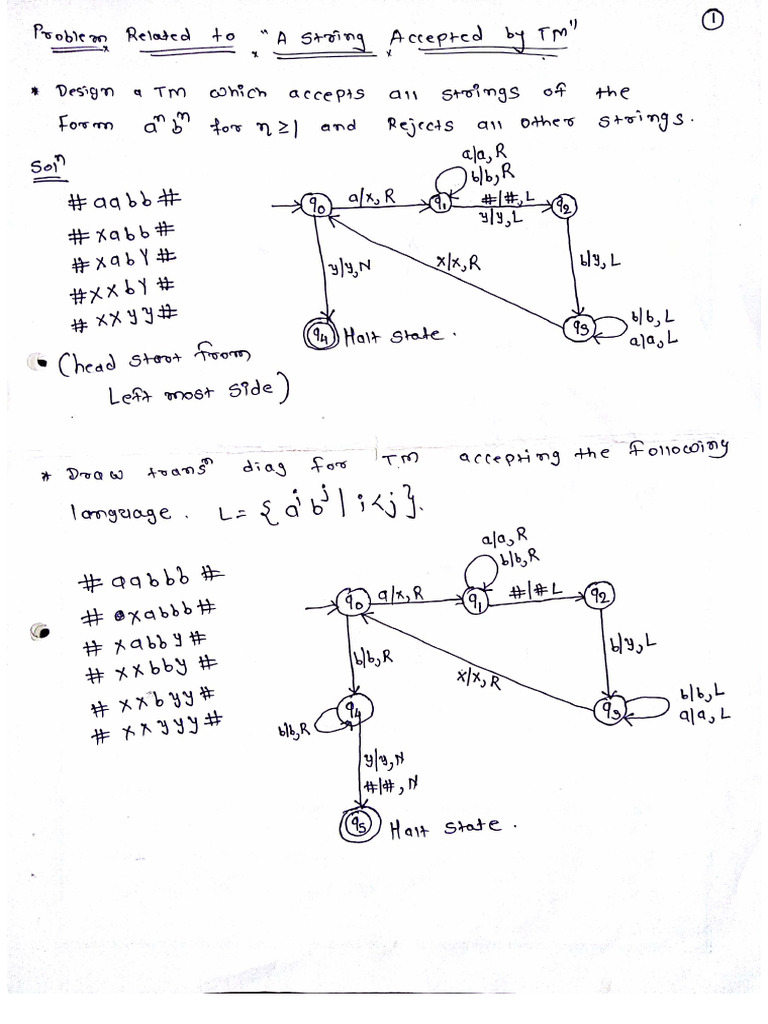 ①
Problem Related to "A String Accepted by TM"
* Design a TM which accepts all strings of the
Form aⁿbⁿ for n≥1 and Rejects all other strings.
Solⁿ
# aabb #
# xabb #
# xabY #
# xxbY #
# xxyy #
(head start from
Left most side)
a/a, R
b/b, R
q0
a/x, R
q1
#/#, L
y/y, L
q2
y/y, N
x/x, R
b/y, L
q4
Halt state.
q3
b/b, L
a/a, L
* Draw transⁿ diag for TM accepting the following
language. L = {aⁱbʲ | i<j}.
# aabbb #
# xabbb #
# xabby #
# xxbby #
# xxbyy #
# xxyyy #
a/a, R
b/b, R
q0
a/x, R
q1
#/# L
q2
b/b, R
x/x, R
b/y, L
q4
b/b, R
q3
b/b, L
a/a, L
y/y, N
#/#, N
q5
Halt state.